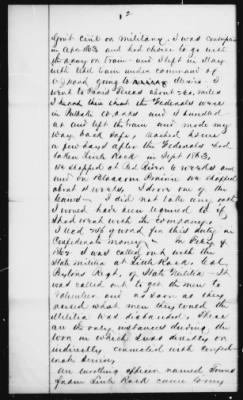 12
Govt Civil or Military. I was conscripted
in Apr 1863 and had choice to go with
the army or train and I left in May
with that train under command of
went to Texas about 200 miles
I heard then that the Federals were
in and
at and left the train and made my
way back safe, reached home
a few days after the Federals had
taken Little Rock in Sept 1863,
we stopped at Red River 2 weeks and
on Blossom Prairie we stopped
about 3 weeks, I drove one of the
teams — I did not take any oath
I would have been required to if
I had went with the Company.
I was paid for this duty in
Confederate money — In
1862 I was called out with the
State militia at Little Rock, Col.
Peytons Regt. of State Militia — It
was called out to get the men to
volunteer and as soon as they
got what men they wanted the
Militia was disbanded. These
are the only instances during the
war in which I was directly or
indirectly connected with Confed-
erate Service
An enrolling officer named
from Little Rock came to my